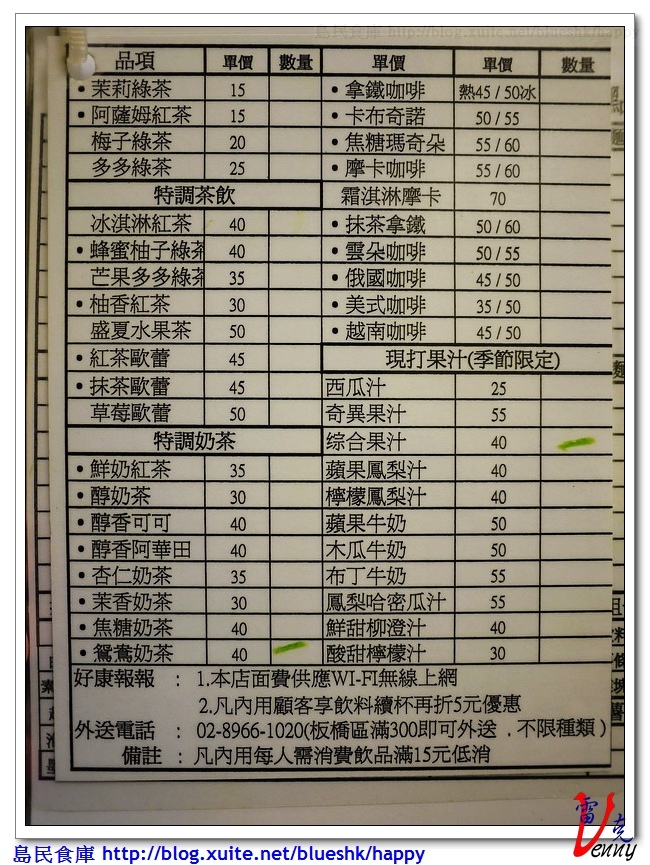 島民食庫 http://blog.xuite.net/blueshk/happy
品項 單價 數量 單價 單價 數量
•茉莉綠茶 15 •拿鐵咖啡 熱45 / 50冰
•阿薩姆紅茶 15 •卡布奇諾 50 / 55
梅子綠茶 20 •焦糖瑪奇朵 55 / 60
多多綠茶 25 •摩卡咖啡 55 / 60
特調茶飲 霜淇淋摩卡 70
冰淇淋紅茶 40 •抹茶拿鐵 50 / 60
•蜂蜜柚子綠茶 40 •雲朵咖啡 50 / 55
芒果多多綠茶 35 •俄國咖啡 45 / 50
•柚香紅茶 30 •美式咖啡 35 / 50
盛夏水果茶 50 •越南咖啡 45 / 50
•紅茶歐蕾 45 現打果汁(季節限定)
•抹茶歐蕾 45 西瓜汁 25
草莓歐蕾 50 奇異果汁 55
特調奶茶 综合果汁 40
•鮮奶紅茶 35 蘋果鳳梨汁 40
•醇奶茶 30 檸檬鳳梨汁 40
•醇香可可 40 蘋果牛奶 50
•醇香阿華田 40 木瓜牛奶 50
•杏仁奶茶 35 布丁牛奶 55
•茉香奶茶 30 鳳梨哈密瓜汁 55
•焦糖奶茶 40 鮮甜柳澄汁 40
•鴛鴦奶茶 40 酸甜檸檬汁 30
好康報報 : 1.本店面費供應WI-FI無線上網
2.凡內用顧客享飲料續杯再折5元優惠
外送電話 : 02-8966-1020(板橋區滿300即可外送 . 不限種類 )
備註 : 凡內用每人需消費飲品滿15元低消
雷克
Venny
島民食庫 http://blog.xuite.net/blueshk/happy